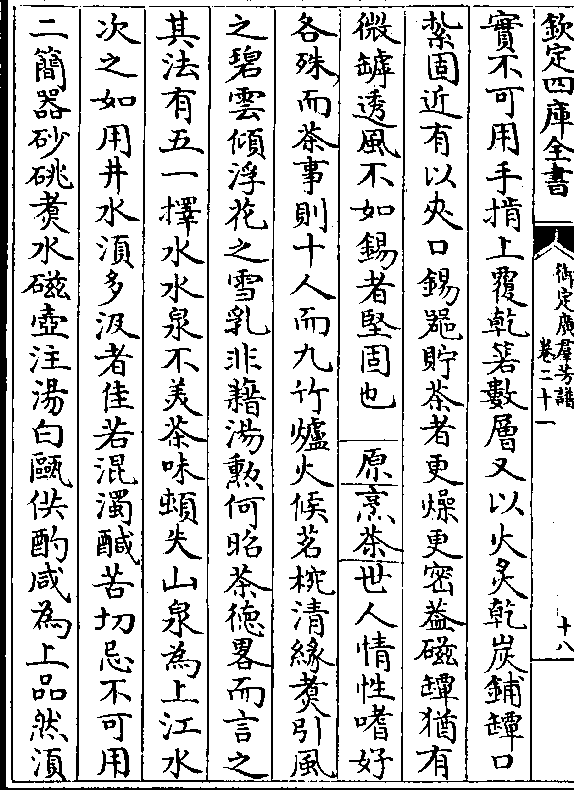 欽定四庫全書
御定廣羣芳譜
卷二十一
十八
實不可用手揹上覆乾箬數層又以火炙乾炭鋪罈口
紮固近有以夾口錫器貯茶者更燥更密葢磁罈猶有
微罅透風不如錫者堅固也 原烹茶世人情性嗜好
各殊而茶事則十人而九竹爐火候茗椀清緣煑引風
之碧雲傾浮花之雪乳非藉湯勲何昭茶德畧而言之
其法有五一擇水水泉不美茶味頓失山泉為上江水
次之如用井水湏多汲者佳若混濁醎苦切忌不可用
二簡器砂銚煑水磁壺注湯白甌供酌咸為上品然湏